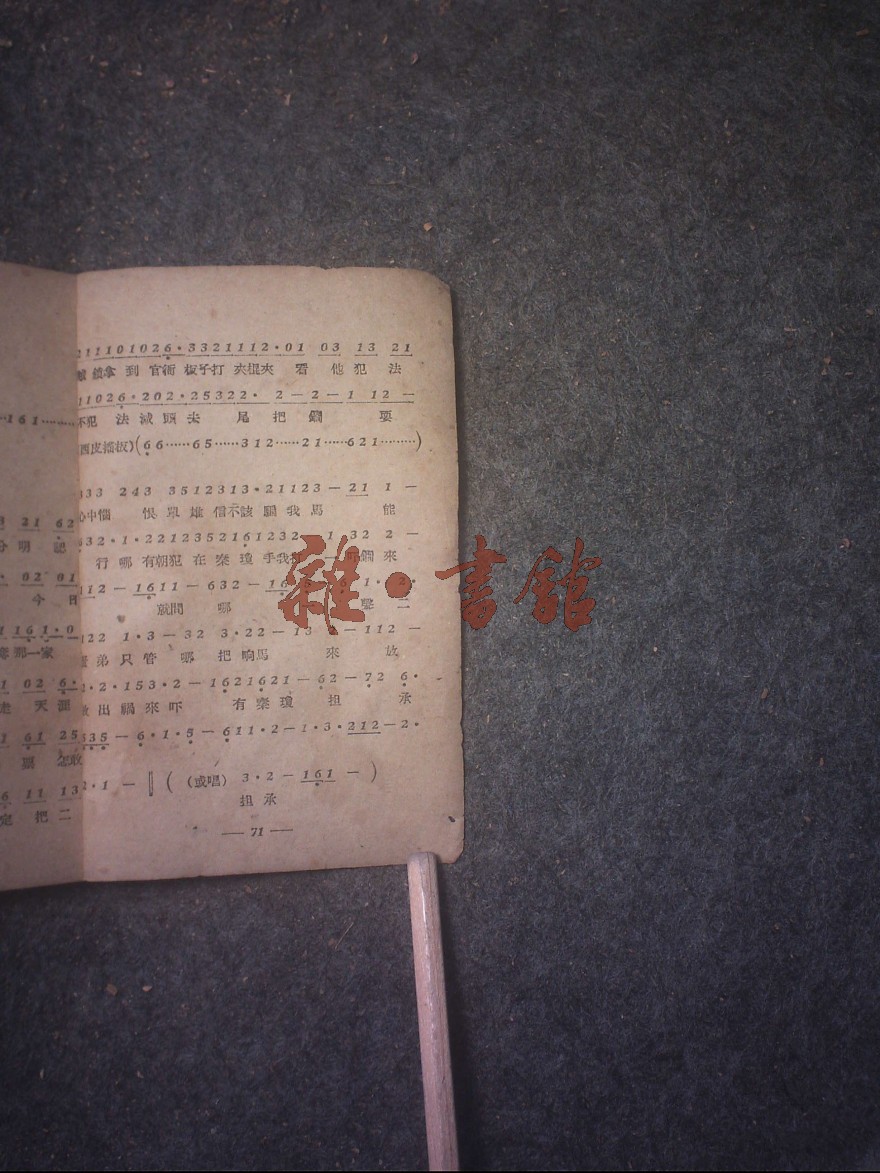 211101026·3321112·01 03 13 21
鎖拿 到 官衙 板子打 夾棍夾 看 他 犯 法
11026·202·25322· 2 — 2 — 1 12 —
不犯 法 滅 頭 去 尾 把 鐗 要
(西皮搖板)(66……65……312……21……621………)
333 243 3512313·21123 — 21 1 —
心中惱 恨 單 雄 信不該 騙 我 馬 能
632·1·2212352161232 1 32 2 —
行 哪 有朝犯 在 秦 瓊 手我 一 鐗 來
112 — 1611 — 632 — 16 61·2·
就問 哪 二
122 1·3 — 32 3·22 — 13 — 112 —
賢 弟 只 管 哪 把 响馬 來 放
2·2·153·2 — 1621621 — 62 — 72 6·
放 出 禍 來 吓 有 秦 瓊 担 承
335 — 6·1·5 — 611·2 — 1·3·212 — 2·
2·1 — ‖ ( (或唱) 3·2 — 161 — )
担 承
— 71 —
161………
3 21 62
分 明 認
· 02 01
今 日
1 161·0
那一家
1 02 6·
走 天 涯
1 61 25
怎敢
6 11 13
定 把 二
雜·書館